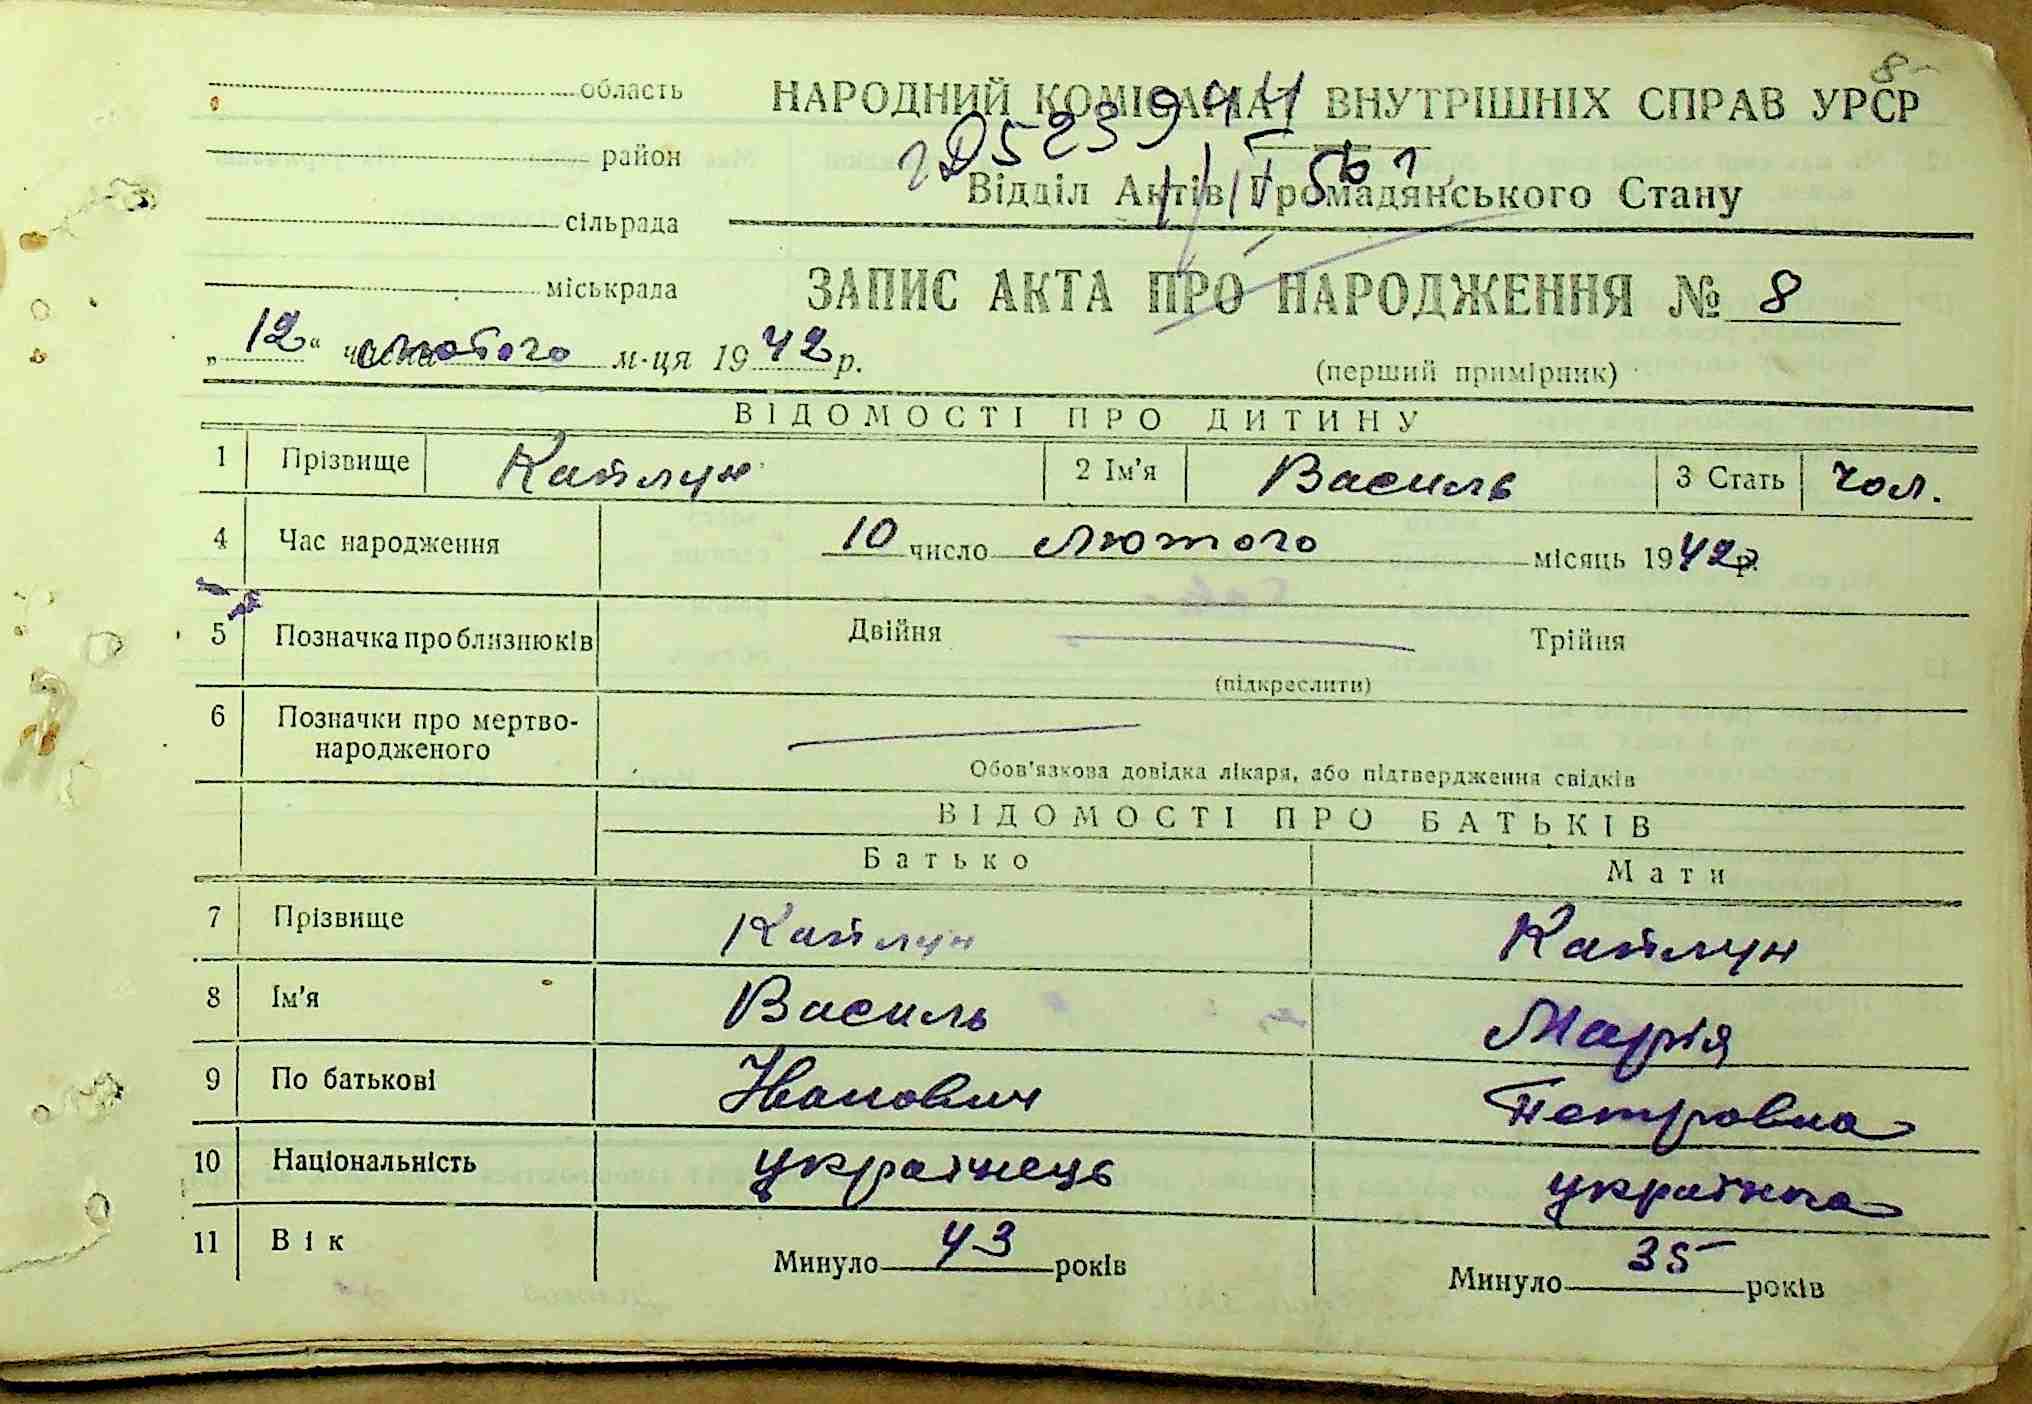 8
область НАРОДНИЙ КОМІСАРІАТ ВНУТРІШНІХ СПРАВ УРСР
район
Відділ Актів Громадянського Стану
сільрада
міськрада
ЗАПИС АКТА ПРО НАРОДЖЕННЯ № 8
„12“ числа лютого м-ця 1942 р.
(перший примірник)
ВІДОМОСТІ ПРО ДИТИНУ
1 Прізвище Каплун 2 Ім'я Василь 3 Стать чол.
4 Час народження 10 число лютого місяць 1942 р.
5 Позначка про близнюків Двійня Трійня
(підкреслити)
6 Позначки про мертво-
народженого
Обов'язкова довідка лікаря, або підтвердження свідків
ВІДОМОСТІ ПРО БАТЬКІВ
Батько Мати
7 Прізвище Каплун Каплун
8 Ім'я Василь Марія
9 По батькові Іванович Петровна
10 Національність українець українка
11 Вік Минуло 43 років Минуло 35 років